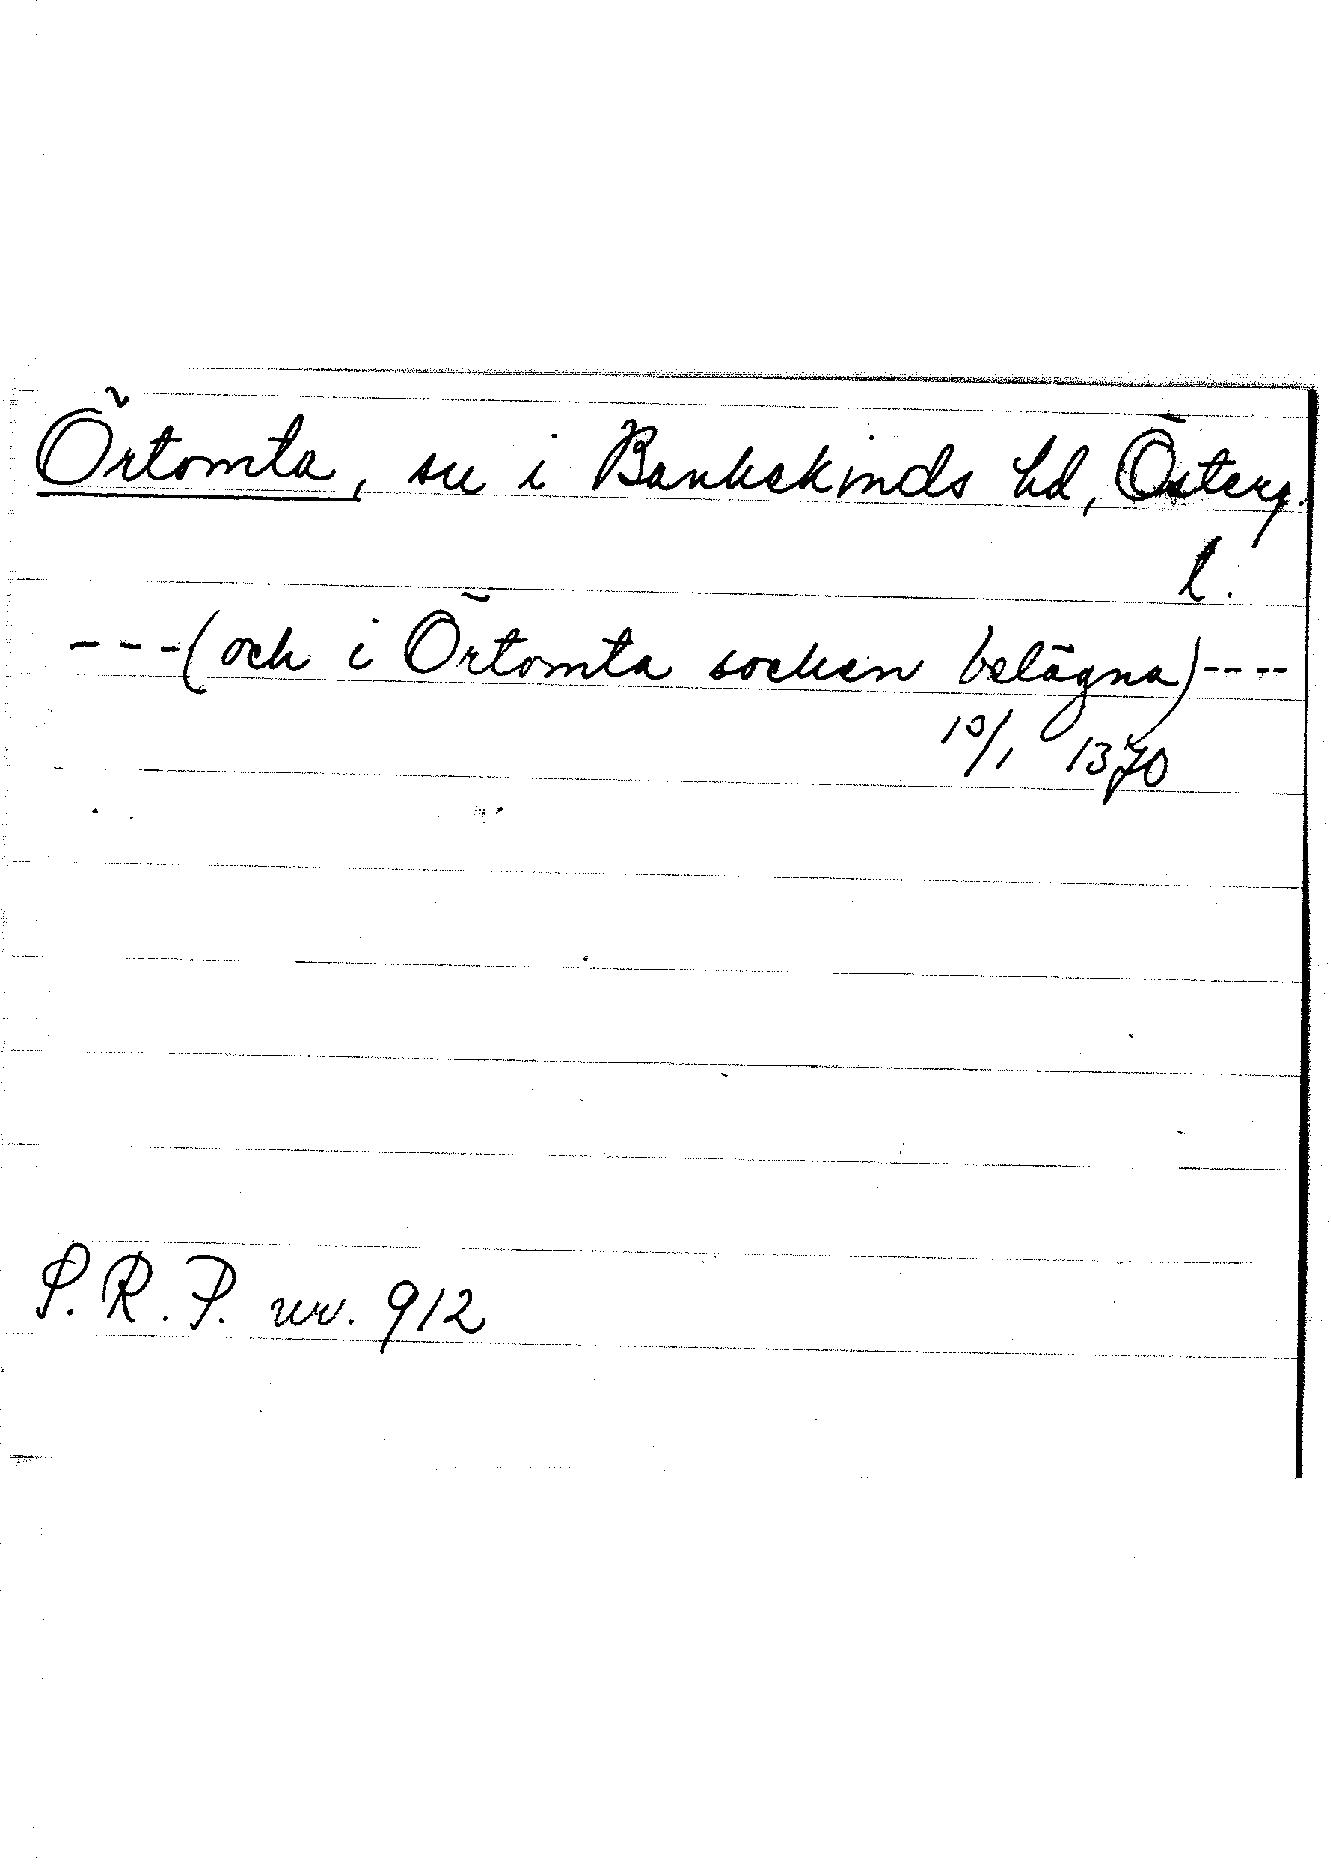 Örtomta, sn i Bankekinds hd, Österg.
l.
---(och i Örtomta socken belägna)----
10/1 1370
S.R.P. nr. 912